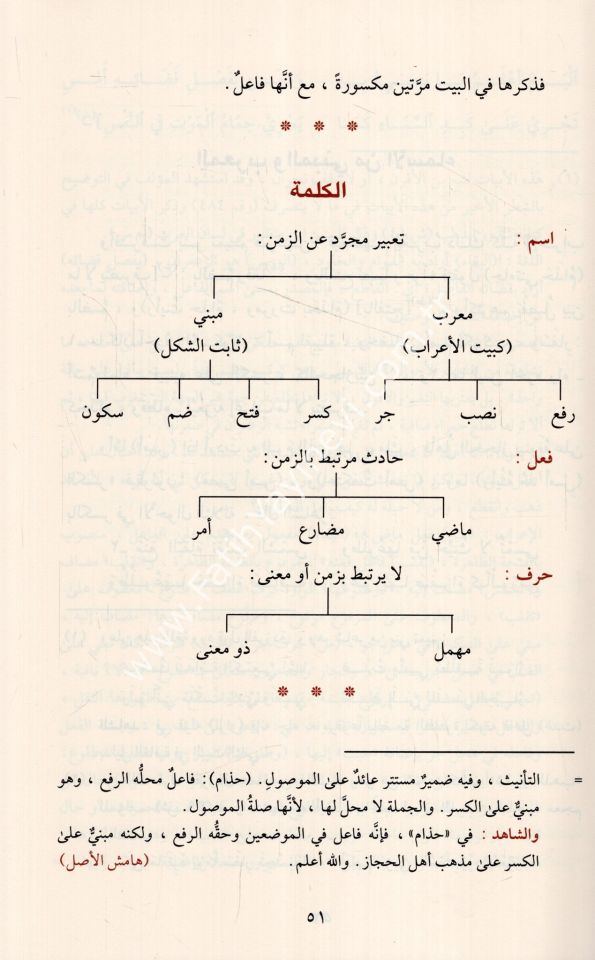 فذكرها في البيت مرَّتين مكسورةً ، مع أنَّها فاعلٌ .
* * *
الكلمة
اسم : تعبير مجرَّد عن الزمن :
معرب مبني
(كبيت الأعراب) (ثابت الشكل)
رفع نصب جر كسر فتح ضم سكون
فعل : حادث مرتبط بالزمن :
ماضي مضارع أمر
حرف : لا يرتبط بزمن أو معنى :
مهمل ذو معنى
* * *
= التأنيث ، وفيه ضميرٌ مستتر عائدٌ على الموصول . (حذام) : فاعلٌ محلُّه الرفع ، وهو
مبنيٌّ على الكسر . والجملة لا محل لها ، لأنَّها صلةُ الموصول .
والشاهد : في «حذام» ، فإنَّه فاعل في الموضعين وحقُّه الرفع ، ولكنه مبنيٌّ على
الكسر على مذهب أهل الحجاز . والله أعلم . (هامش الأصل)
٥١